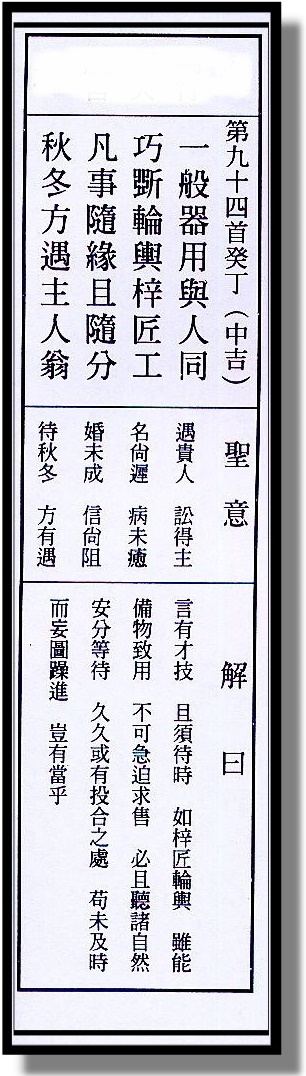 第九十四首癸丁（中吉）
一般器用與人同
巧斲輪輿梓匠工
凡事隨緣且隨分
秋冬方遇主人翁
聖意
遇貴人 訟得主
名尙遲 病未癒
婚未成 信尙阻
待秋冬 方有遇
解曰
言有才技 且須待時 如梓匠輪輿 雖能
備物致用 不可急迫求售 必且聽諸自然
安分等待 久久或有投合之處 苟未及時
而妄圖躁進 豈有當乎